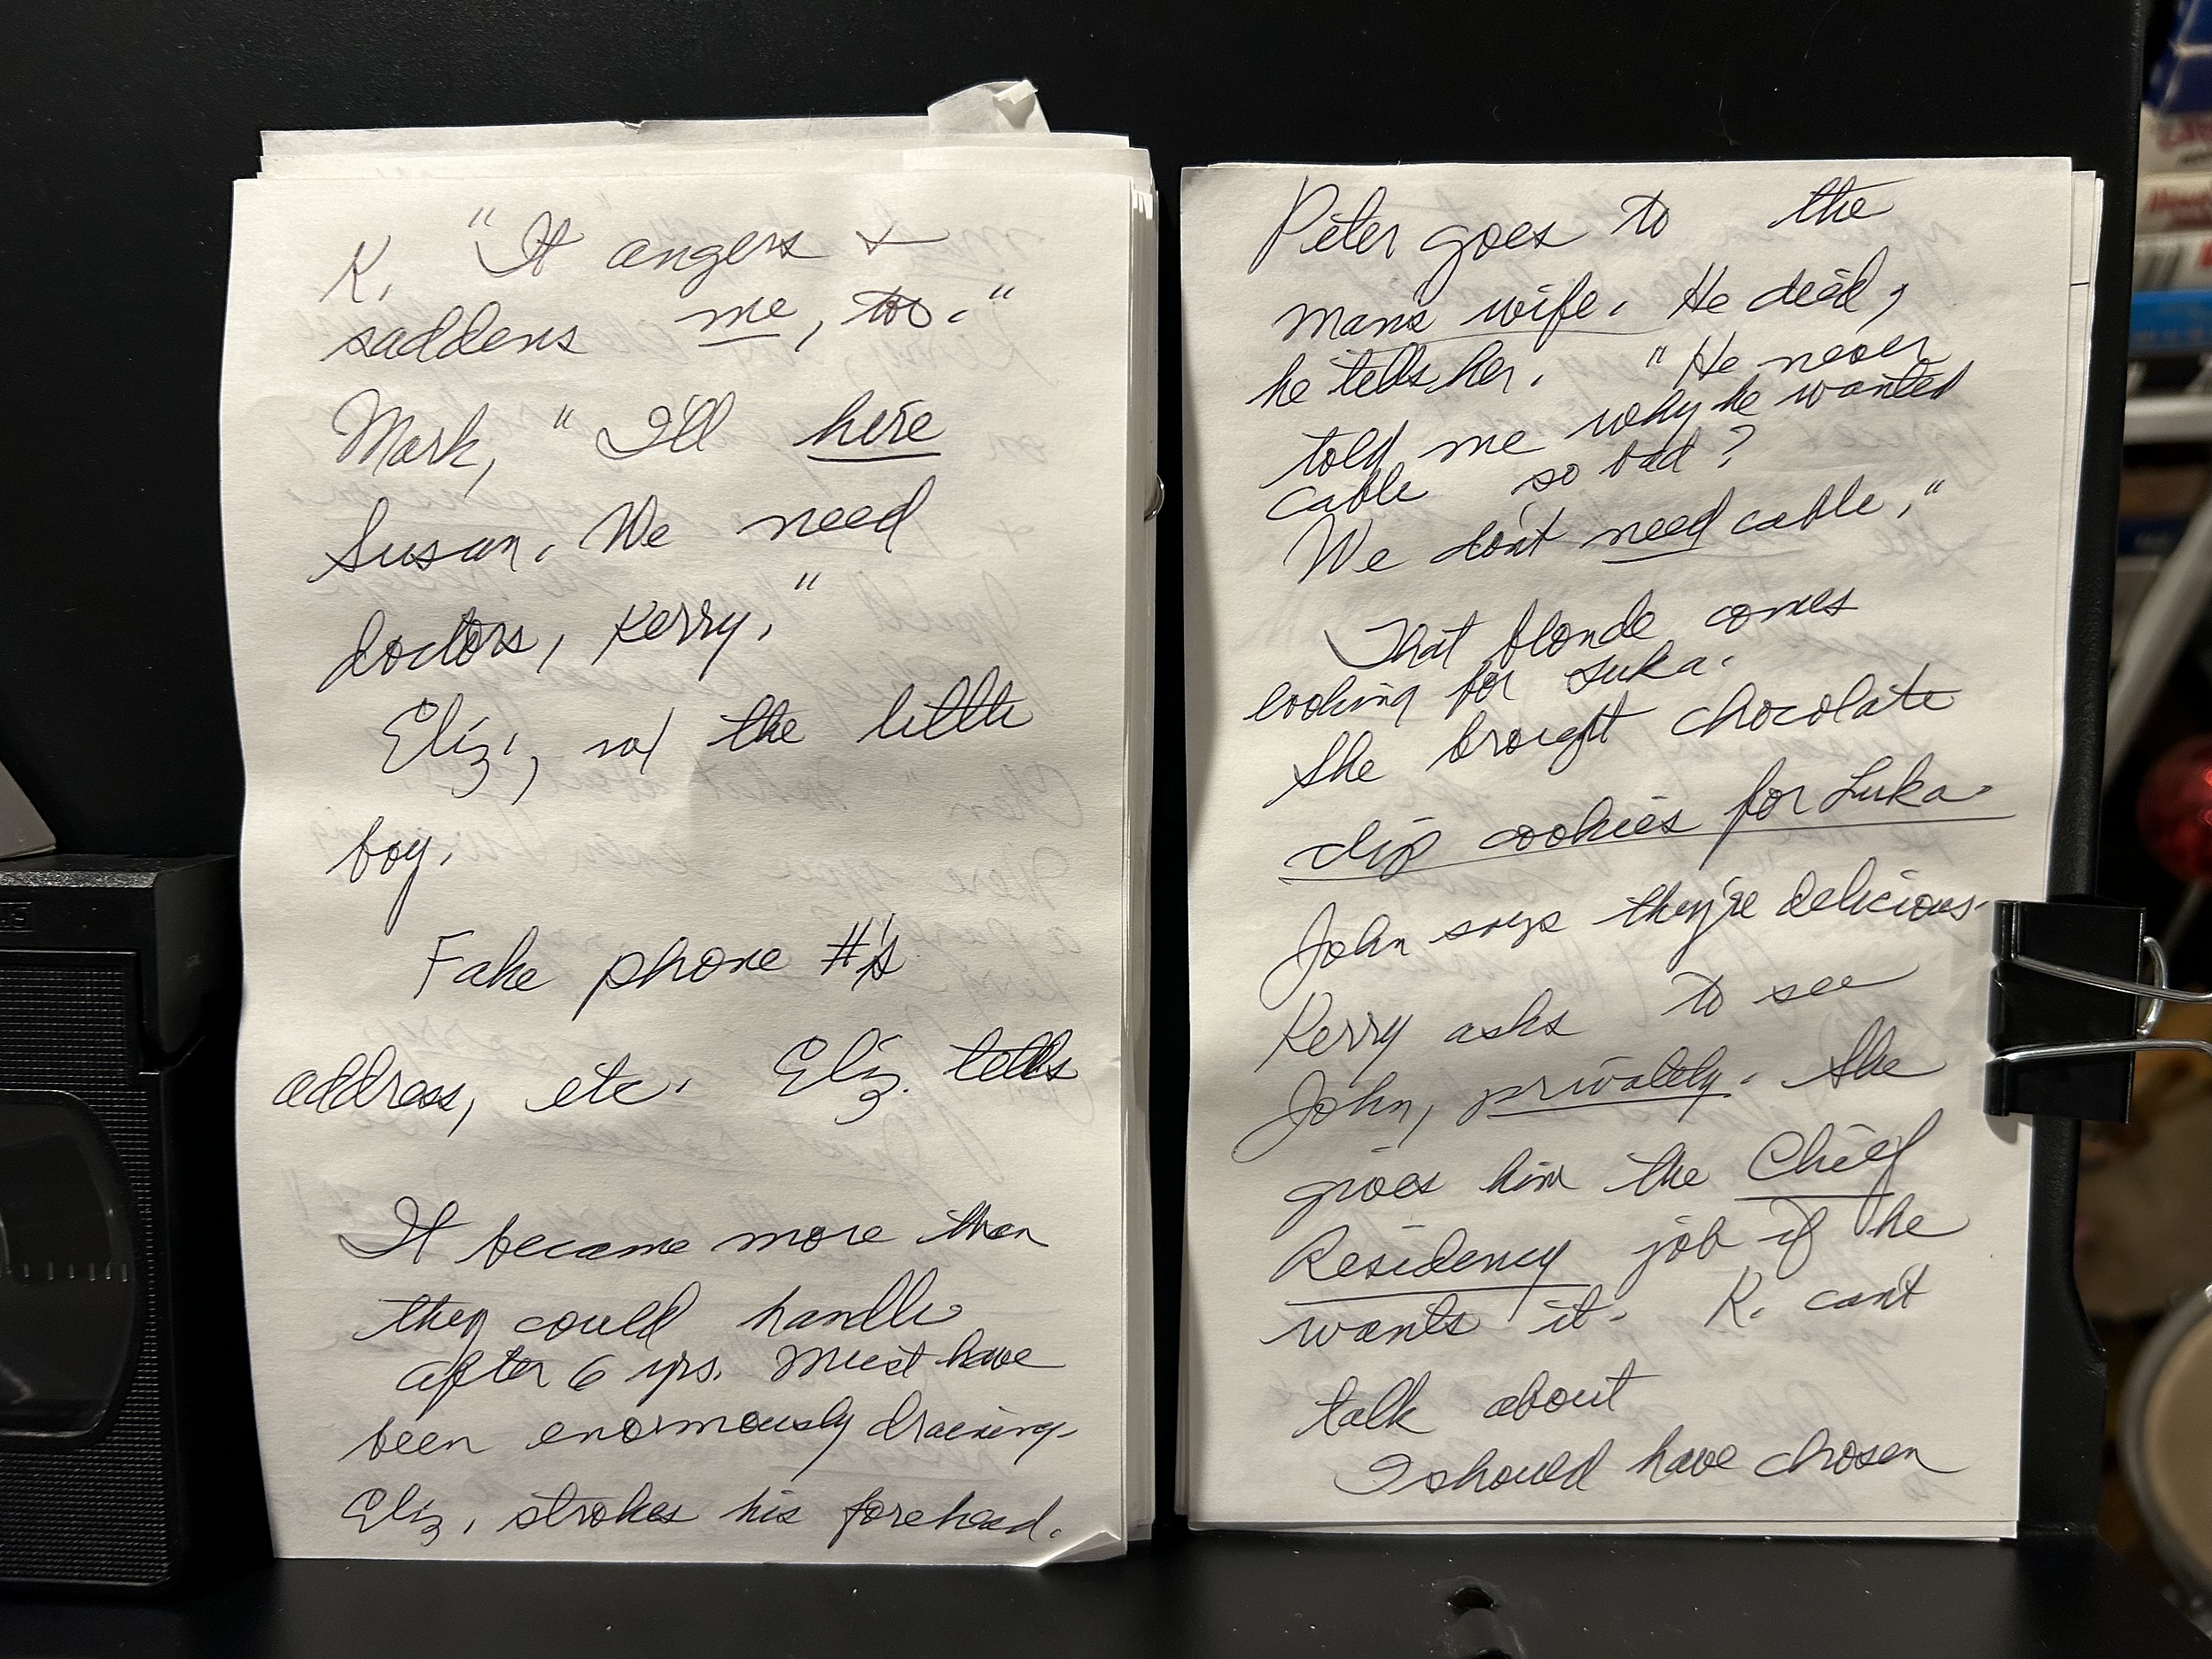 K. "It angers +
saddens me, too."
Mark, "I'll here
Susan. We need
doctors, Kerry."
Eliz., w/ the little
boy.
Fake phone #'s
address, etc. Eliz. tells
It became more than
they could handle
after 6 yrs. Must have
been enormously draining.
Eliz. strokes his forehead.
Peter goes to the
man's wife. He died,
he tells her. "He never
told me why he wanted
cable so bad?
We don't need cable,"
That blonde comes
looking for Luka.
She brought chocolate
chip cookies for Luka.
John says they're delicious.
Kerry asks to see
John, privately. She
gives him the Chief
Residency job if he
wants it. K. can't
talk about
I should have chosen